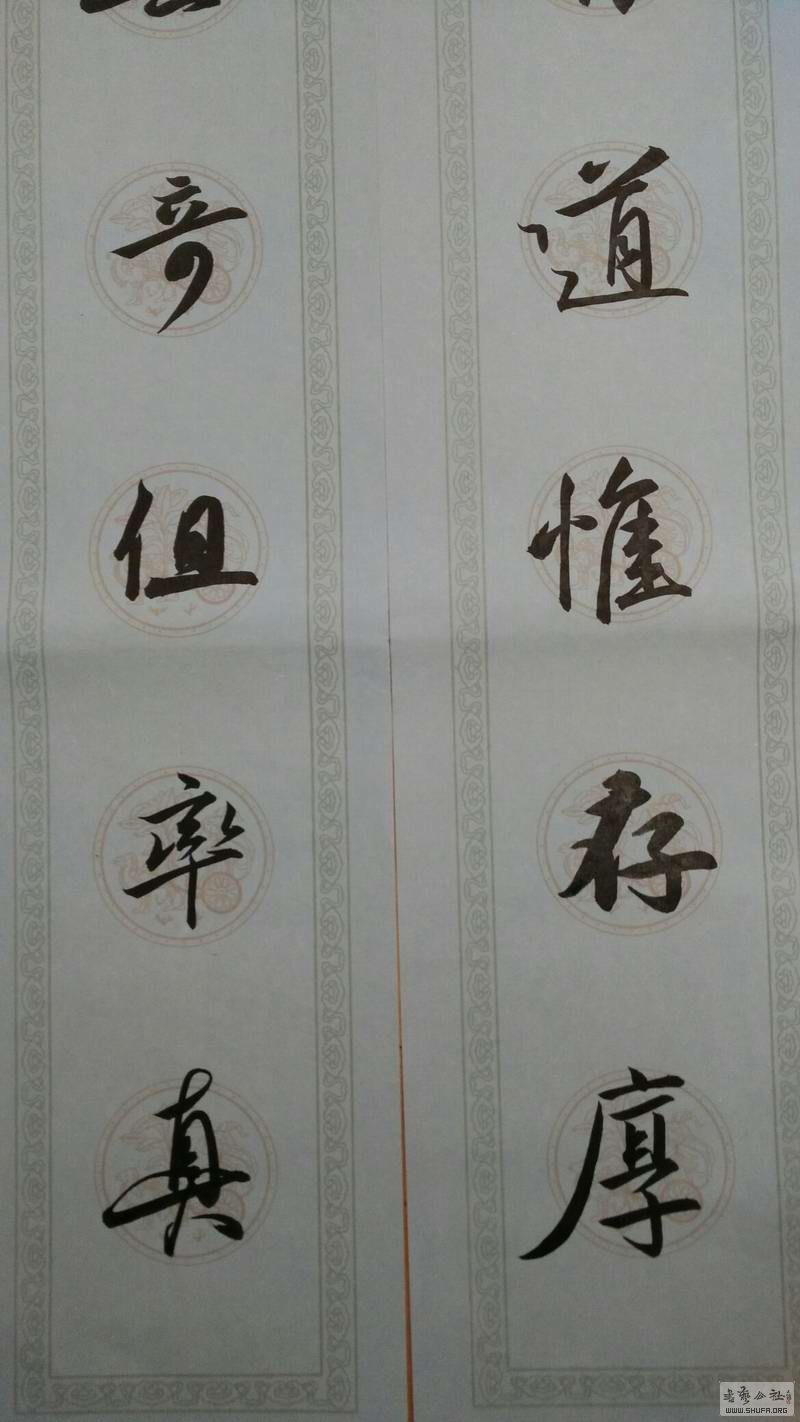 道惟存厚
奇但率真
书艺公社
WWW.SHUFA.ORG